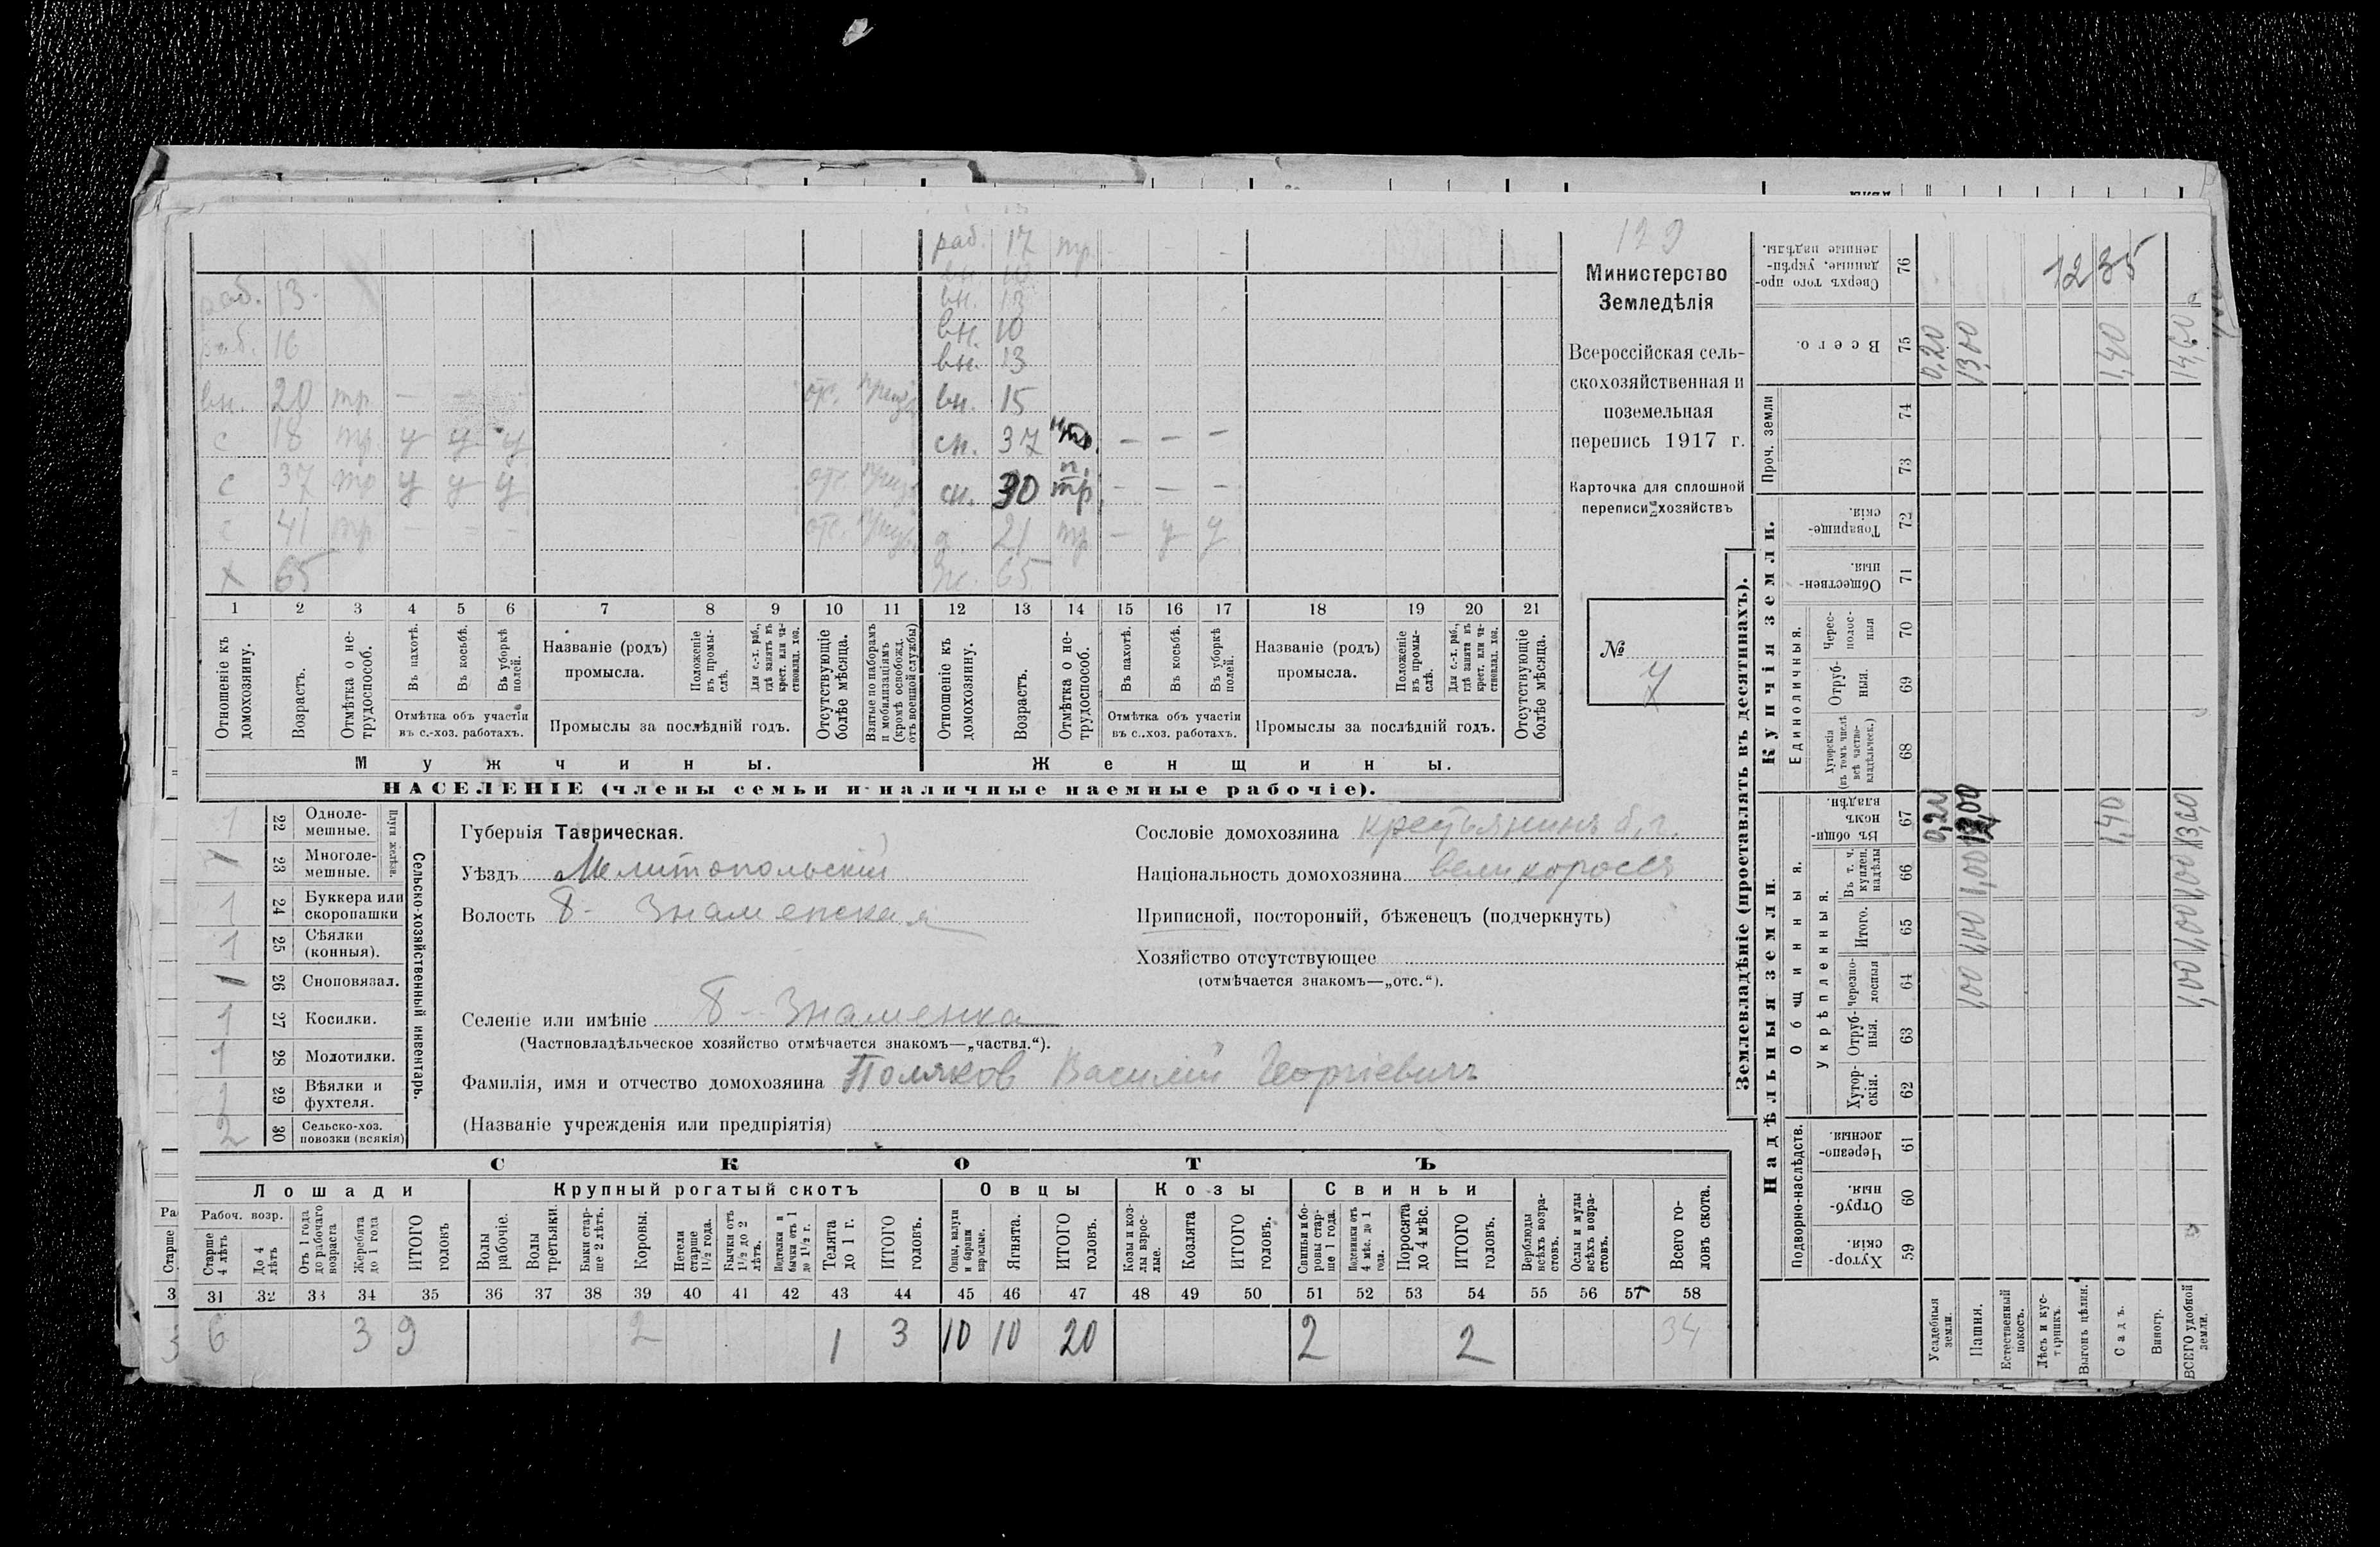 129
Министерство
Земледѣлія
Всероссійская сель-
скохозяйственная и
поземельная
перепись 1917 г.
Карточка для сплошной
переписи хозяйствъ
№
раб. 17 тр
раб. 13 вн. 13
раб. 16 вн. 10
вн. 13
вн. 20 тр — вн. 15
с 18 тр у у у сн. 37 — — —
с 37 у у у сн. 30 тр. — — —
с 41 тр — — — 21 тр — у у
х 65 ж. 65
1 2 3 4 5 6 7 8 9 10 11 12 13 14 15 16 17 18 19 20 21
Отношеніе къ домохозяину.
Возрастъ.
Отмѣтка о не-трудоспособ.
Въ пахотѣ.
Въ косьбѣ.
Въ уборкѣ полей.
Отмѣтка объ участіи
въ с.-хоз. работахъ.
Названіе (родъ)
промысла.
Положеніе въ промы-слѣ.
Для с.-х. раб., гдѣ занятъ въ крест. или ча-стновлад. хоз.
Промыслы за послѣдній годъ.
Отсутствующіе болѣе мѣсяца.
Взятые по наборамъ и мобилизаціямъ (кромѣ освобожд. отъ военной службы)
Отношеніе къ домохозяину.
Возрастъ.
Отмѣтка о не-трудоспособ.
Въ пахотѣ.
Въ косьбѣ.
Въ уборкѣ полей.
Отмѣтка объ участіи
въ с..хоз. работахъ.
Названіе (родъ)
промысла.
Положеніе въ промы-слѣ.
Для с.-х. раб., гдѣ занята въ крест. или ча-стновлад. хоз.
Промыслы за послѣдній годъ.
Отсутствующіе болѣе мѣсяца.
Мужчины. Женщины.
НАСЕЛЕНІЕ (члены семьи и наличные наемные рабочіе).
1 22 Одноле-мешные.
1 23 Многоле-мешные.
Плуги желѣзн.
1 24 Буккера или скоропашки
1 25 Сѣялки (конныя).
1 26 Сноповязал.
1 27 Косилки.
1 28 Молотилки.
1 29 Вѣялки и фухтеля.
2 30 Сельско-хоз. повозки (всякія)
Сельско-хозяйственный инвентарь.
Губернія Таврическая.
Уѣздъ Мелитопольскій
Волость Б- Знаменская
Селеніе или имѣніе Б- Знаменка
(Частновладѣльческое хозяйство отмѣчается знакомъ—„частвл.“).
Фамилія, имя и отчество домохозяина Поляков Василій Георгіевичъ
(Названіе учрежденія или предпріятія)
Сословіе домохозяина крестьянинъ б. г.
Національность домохозяина великороссъ
Приписной, посторонній, бѣженецъ (подчеркнуть)
Хозяйство отсутствующее
(отмѣчается знакомъ—„отс.“).
СКОТЪ
Лошади Крупный рогатый скотъ Овцы Козы Свиньи
Рабоч. возр.
Старше 4 лѣтъ
До 4 лѣтъ
Отъ 1 года до рабочаго возраста
Жеребята до 1 года
ИТОГО головъ
Волы рабочіе.
Волы третьяки.
Быки стар-ше 2 лѣтъ.
Коровы.
Нетели старше 1½ года.
Бычки отъ 1½ до 2 лѣтъ.
Подтелки и бычки отъ 1 до 1½ г.
Телята до 1 г.
ИТОГО головъ.
Овцы, валухи и бараны взрослые.
Ягнята.
ИТОГО головъ.
Козы и коз-лы взрос-лые.
Козлята
ИТОГО головъ.
Свиньи и бо-ровы стар-ше 1 года.
Подсвинки отъ 4 мѣс. до 1 года.
Поросята до 4 мѣс.
ИТОГО головъ.
Верблюды всѣхъ возра-стовъ.
Ослы и мулы всѣхъ возра-стовъ.
Всего го-ловъ скота.
31 32 33 34 35 36 37 38 39 40 41 42 43 44 45 46 47 48 49 50 51 52 53 54 55 56 57 58
6 3 9 2 1 3 10 10 20 2 2 34
Землевладѣніе (проставлять въ десятинахъ).
Надѣльныя земли. Купчія земли.
Подворно-наслѣдств.
Общинныя.
Укрѣпленныя.
Единоличныя.
Проч. земли
Хутор-скія. 59
Отруб-ныя. 60
Черезпо-лосныя. 61
Хутор-скія. 62
Отруб-ныя. 63
Черезпо-лосныя 64
Итого. 65
Въ т. ч. куплен. надѣлы 66
Въ общин-номъ владѣн. 67
Хуторскія (въ томъ числѣ всѣ частно-владѣльческ.) 68
Отруб-ныя. 69
Черес-полос-ныя 70
Обществен-ныя. 71
Товарище-скія. 72
73
74
Всего. 75
Сверхъ того про-данные, укрѣп-ленные надѣлы. 76
Усадебныя земли. 0,20 0,20
Пашня. 1,00 1,00 1,00 12,00 13,00
Естественный покосъ.
Лѣсъ и кус-тарникъ.
Выгонъ цѣлин.
Садъ. 1,40 1,40
Виногр.
ВСЕГО удобной земли. 1,00 1,00 1,00 13,60 14,60
1235